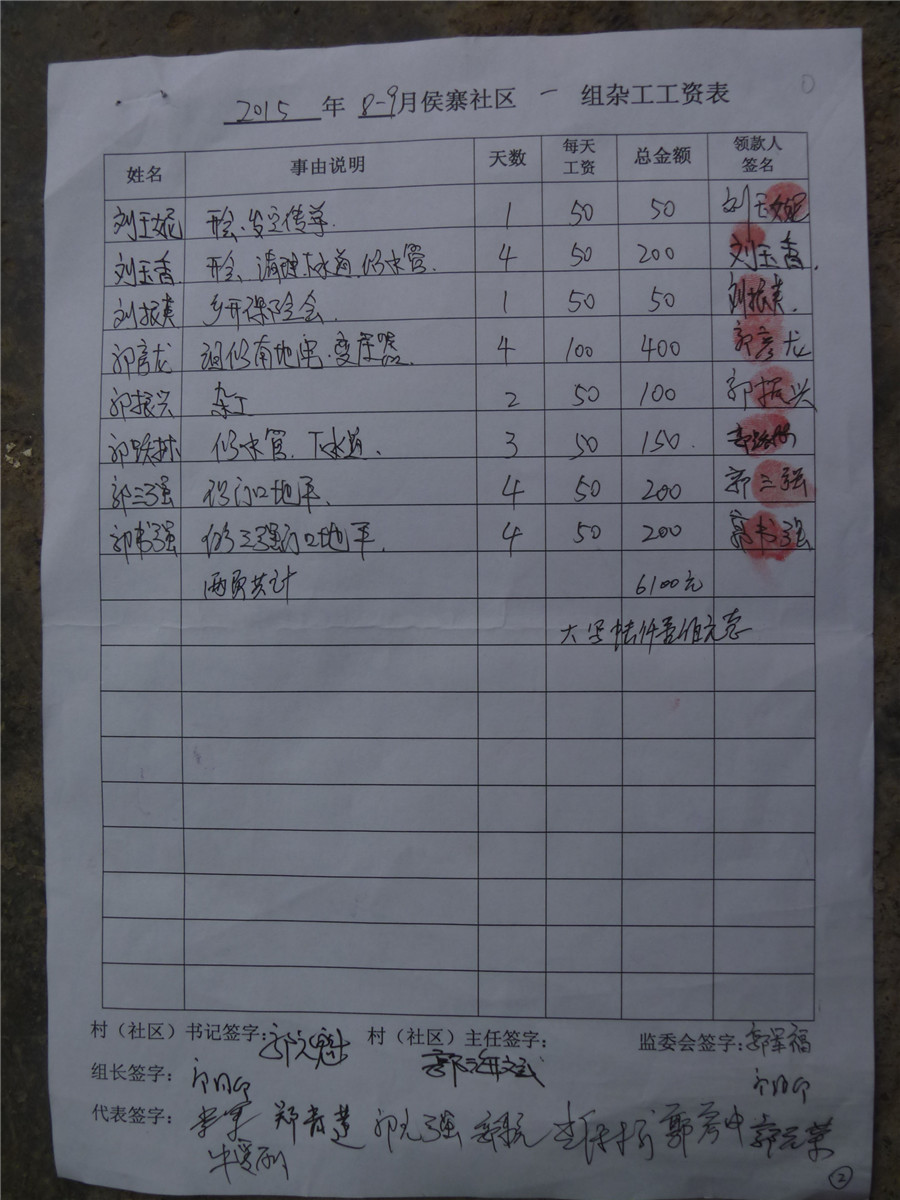 2015 年 8-9月侯寨社区 一 组杂工工资表
姓名 事由说明 天数 每天工资 总金额 领款人签名
刘玉妮 开会、发宣传单 1 50 50 刘玉妮
刘玉香 开会、清理下水道、修水管. 4 50 200 刘玉香.
刘振英 乡开保险会. 1 50 50 刘振英.
郭彦龙 南地电.变压器. 4 100 400 郭彦龙
郭振兴 杂工 2 50 100 郭振兴
修水管、下水道. 3 50 150.
郭三强 门口地平. 4 50 200 郭三强
郭书强 修三强门口地平. 4 50 200 郭书强
两页共计 6100元
大写 陆仟壹佰元整
村（社区）书记签字： 村（社区）主任签字： 监委会签字：郭军福
组长签字： 郭海斌
代表签字： 李军 郑青莲 郭元强
2